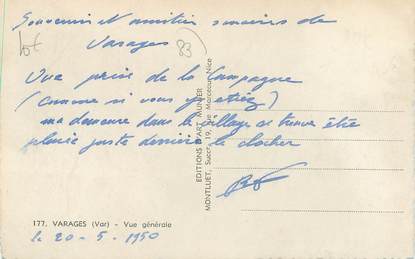 Souvenir et amitiés sincères de
Varages
lot
83
Vue prise de la Campagne
(Comme si vous y étiez)
ma demeure dans le village se trouve être
placée juste derrière le clocher
EDITIONS D'ART MUNIER
MONTLUET, Succr, 19, Rue Marceau, Nice
177. VARAGES (Var) - Vue générale
le 20-5-1950